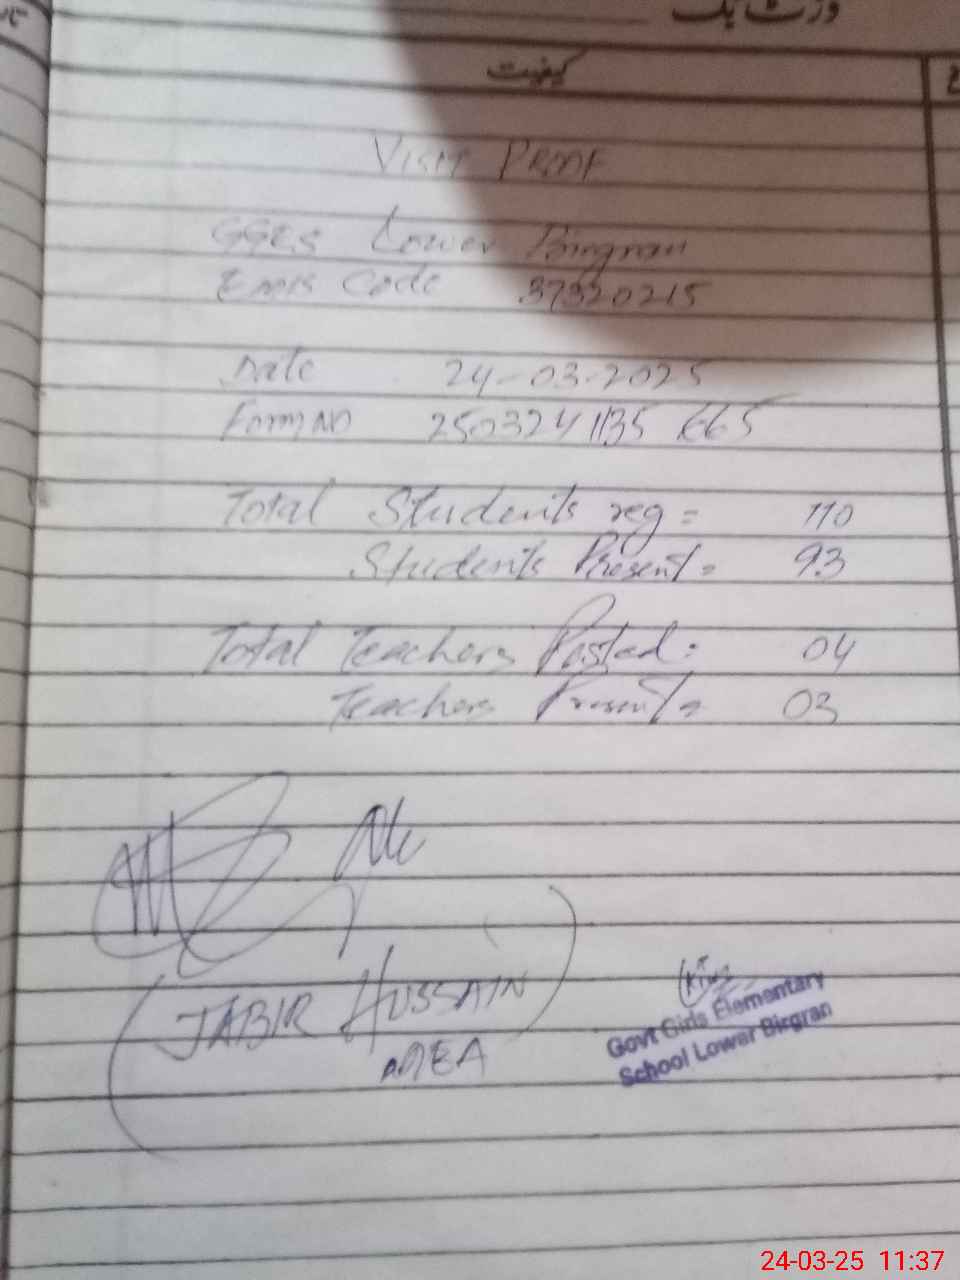 وزٹ بک
کیفیت
VISIT PROOF
GGES Lower Birgran
Emis Code 37320215
Date 24-03-2025
Form NO 250324 1135 665
Total Students reg = 110
Students Present = 93
Total Teachers Posted = 04
Teachers Present = 03
(JABIR HUSSAIN)
MEA
Govt Girls Elementary
School Lower Birgran
24-03-25 11:37